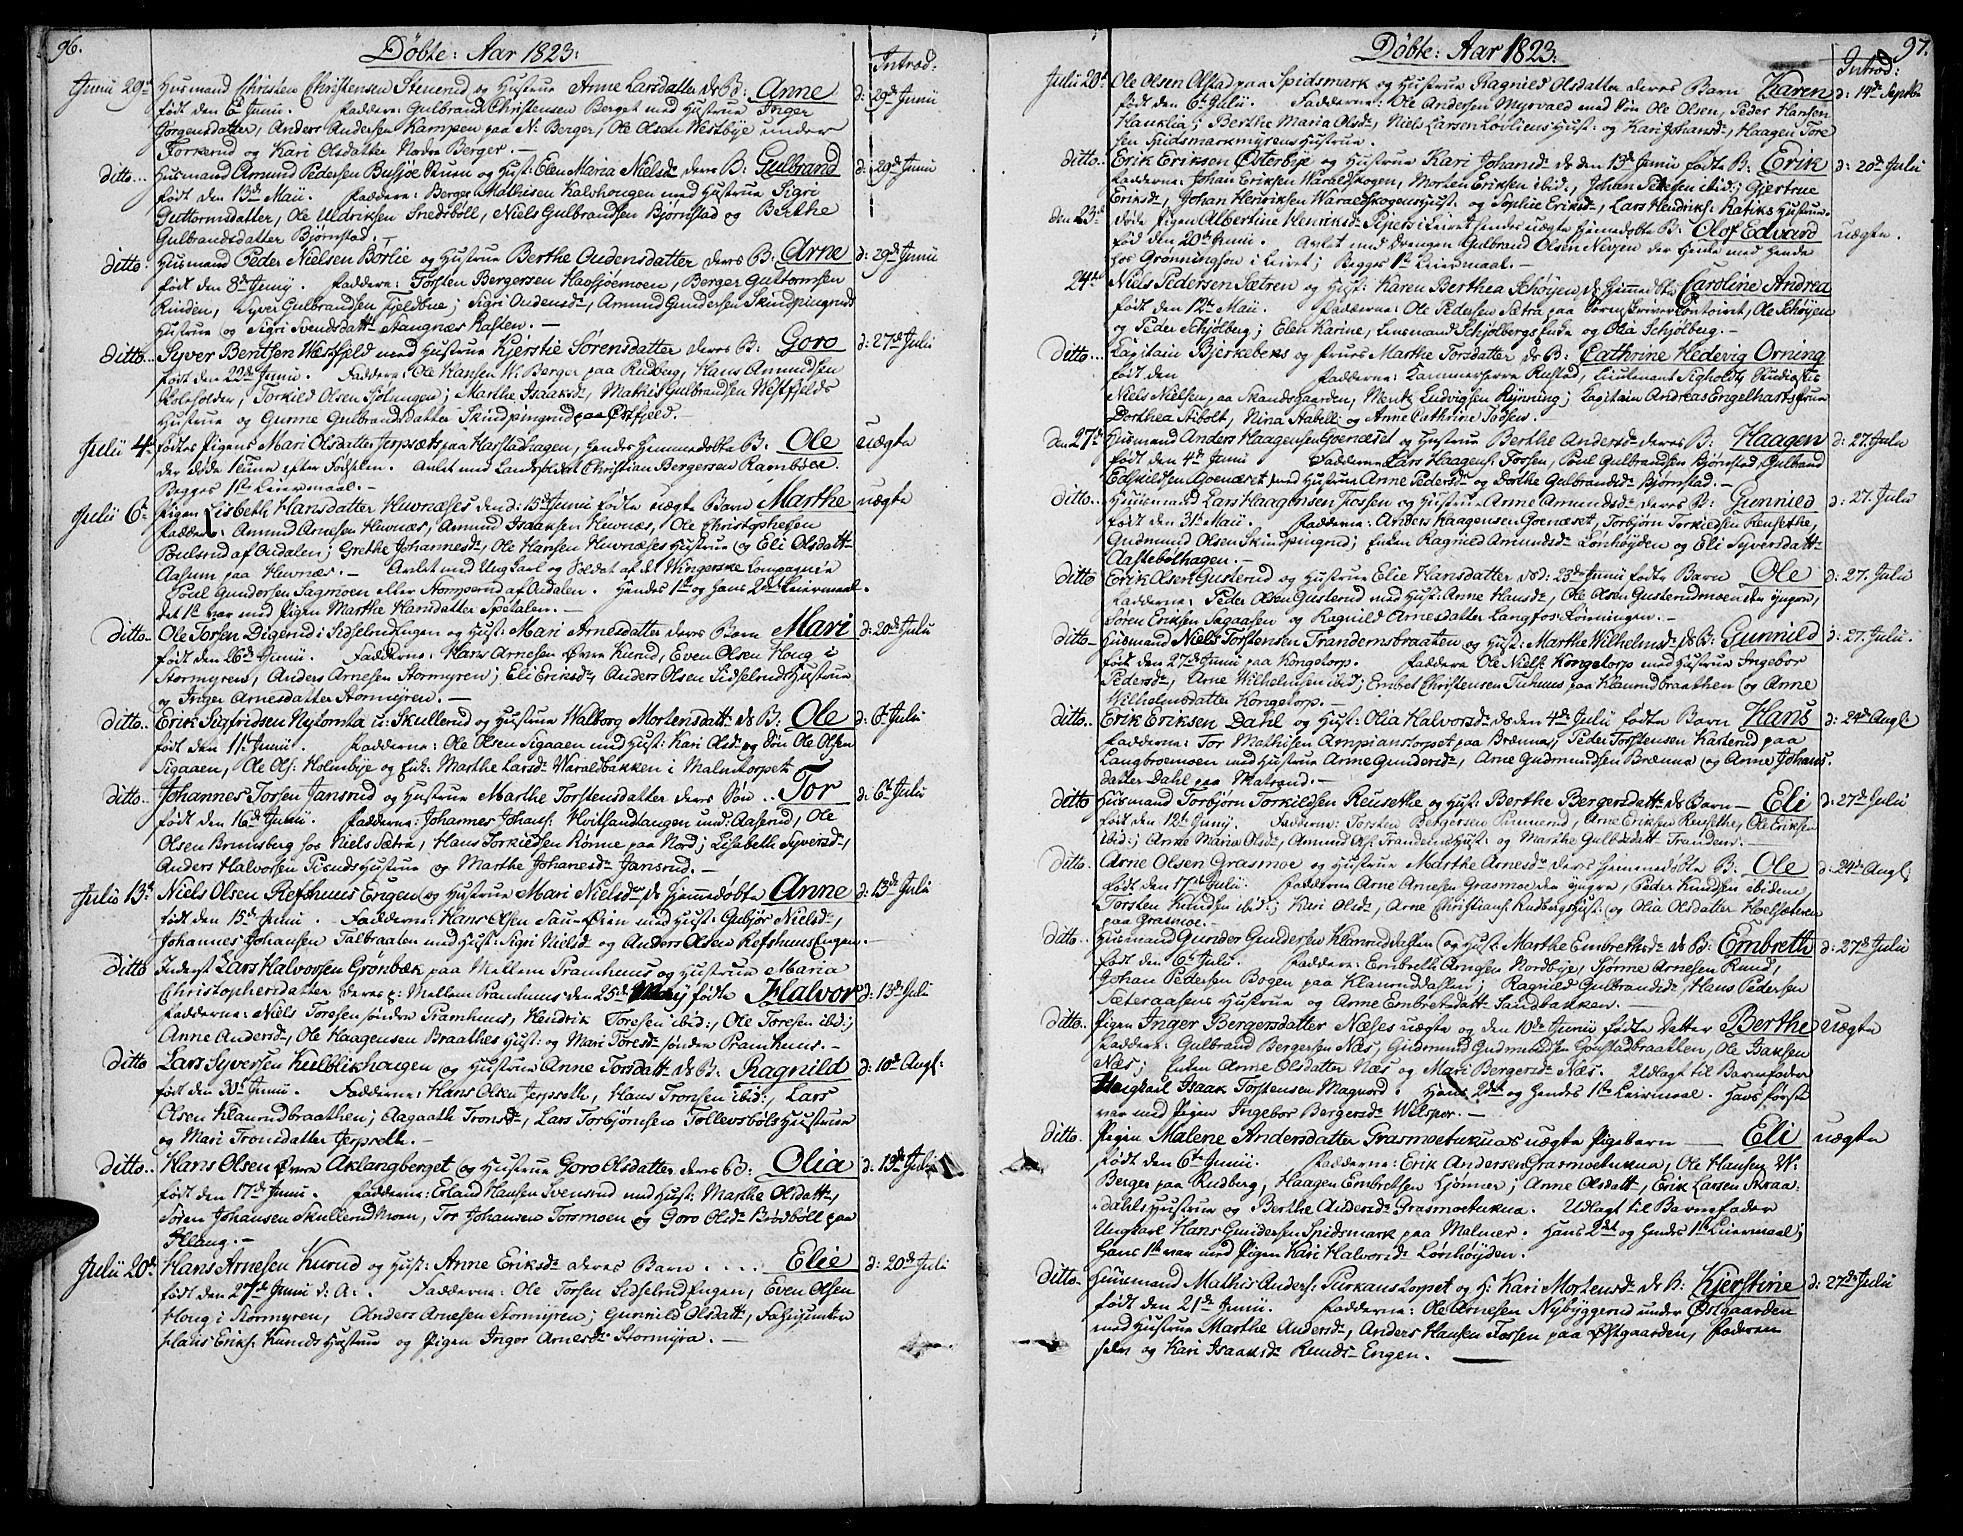 96.
Döbte: Aar 1823:
Introd:
Junii 29de Huusmand Christen Christensen Stenerud og Hustrue Anne Larsdatter ds B: Anne d: 29de Junii
født den Junii. Faddere: Gulbrand Christensen Berget med Hustrue Inger
Jørgensdatter, Anders Andersen Kampen paa N: Berger, Ole Olsen Westbye under
Torkerud og Kari Olsdatter Nordre Berger.
ditto.. Huusmand Amund Pedersen og Hust: Elen Maria Nielsd: ds B: Gulbrand d: 29de Junii
født den 13de Maii. Faddere: Berger Mathisen Kalvhougen med Hustrue Sigri
Guttormsdatter, Ole Uldriksen Snedsböll, Niels Gulbrandsen Björnstad og Berthe
Gulbrandsdatter Björnstad.
ditto. Huusmand Peder Nielsen Borlie og Hustrue Berthe Oudensdatter deres B: Arne d: 29de Junii
født den 8de Junij. Faddere: Torsten Bergersen Hassjöemoen, Berger Guttormsen
Rinden, Syver Gulbrandsen Fjeldbue; Sigri Oudensdr, Amund Gundersen Skindpingruds
Hustrue og Sigri Svendsdatt: Stangnæs kasten.
ditto.. Syver Bentsen Westfjeld med Hustrue Kjerstie Sörensdatter deres B: Goro d: 27de Julii
født den 22de Junii. Faddere: Ole Hansen W. Berger paa Rudberg, Hans Amundsen
Kroholder, Torkild Olsen Sjölungen; Marthe Isaaksdr, Mathis Gulbrandsen Westfjelds
Hustrue og Gunne Gulbrandsdatter Skindpingrud paa Østfjeld.
Julii 4de födtes Pigens Mari Olsdatter Jerpsæts paa Harstadhagen, hendes hiemmedöbte B: Ole uægte
der döde 1 Time efter Fødselen. Avlet med Landsoldat Christian Bergersen Ramböle.
Begges 1ste Leiermaal.
Julii 6te Pigen Lisbeth Hansdatter Huvnæses den 15de Junii födte uægte Barn Marthe uægte
Faddere: Amund Arnesen Huvnæs, Amund Isaaksen Huvnæs, Ole Christophersen
Poulsrud af Audalen; Grethe Johannesdr, Ole Hansen Huvnæses Hustrue og Eli Olsdatt:
Aasum paa Huvnæs. Avlet med Ungkarl og Soldat af det Wingerske Compagnie
Poul Gundersen Sagmoen eller Stomperud af Audalen. Hendes 1ste og hans 2det Leiermaal.
det 1ste var med Pigen Marthe Hansdatter Spetalen.
ditto.. Ole Torsen Digerud i Sidselrud Engen og Hust: Mari Arnesdatter deres Barn Mari d: 20de Julii
født den 26de Junii. Fadderne: Hans Arnesen Övre Kurud, Even Olsen Houg i
Stormyren, Anders Arnesen Stormyren; Eli Eriksdr, Anders Olsen Sidselrud Hustrue
og Inger Arnesdatter Stormyren.
ditto.. Erik Sigfridsen Nytomta i: Skullerud og Hustrue Walborg Mortensdatt: ds B: Ole d: 6te Julii
født den 11te Junii. Fadderne: Ole Olsen Sigaaen med Hust: Kari Olsdr og Sön Ole Olsen
Sigaaen, Ole Ols: Holmbye og Enk: Marthe Larsdr Waraldbakken i Malmtorpet.
ditto.. Johannes Torsen Jansrud og Hustrue Marthe Torstensdatter deres Sön .. Tor d: 6te Julii
født den 16de Junii. Faddere: Johannes Johans: Hvitsandtangen und: Aaserud, Ole
Olsen Brunsberg hos Niels Sætra, Hans Torkildsen Rönne paa Nord; Lisabeth Syversdr,
Anders Halvorsen Hustrue og Marthe Johanesdr Jansrud.
Julii 13de Niels Olsen Refshuus Engen og Hustrue Mari Nielsdr ds hjemmedöbte Anne d: 13de Julii
født den 15de Junii. Fadderne: Hans Olsen Sau-Öien med Hust: Gubjør Nielsdr,
Johannes Johansen Talbraaten med Hust: Sigri Nielsdr og Anders Olsen Refshuus Engen.
ditto Inderst Lars Halvorsen Grönbæk paa Mellem Pramhuus og Hustrue Maria
Christophersdatter deres p: Mellem Pramhuus den 25de Maij födte Halvor d: 13de Juli
Fadderne: Niels Toresen söndre Pramhuus, Hendrik Toresen ibid:, Ole Toresen ibid:;
Anne Andersdr, Ole Haagensen Braathes Hust: og Mari Toresdr söndre Pramhuus.
ditto Lars Syversen Kiölblikhougen og Hustrue Anne Torsdatt: ds B: Ragnild d: 10de Augl:
født den 30te Junii. Fadderne: Hans Olsen Jerpseth, Hans Tronsen ibid:, Lars
Olsen Klanrudbraathen; Aagaath Tronsdr, Lars Torbjörnsen Tollevsböls Hustrue
og Mari Tronsdatter Jerpseth.
ditto.. Hans Olsen Övre Aklangberget og Hustrue Goro Olsdatter deres B: Olia d: 13de Juli
født den 17de Junii. Fadderne: Erland Hansen Svensrud med Hust: Marthe Olsdatt:,
Sören Johansen Skullerud Moen, Tor Johansen Torsmoen og Goro Olsdr Brödböll paa
Aklang.
Julii 20de Hans Arnesen Kurud og Hust: Anne Eriksdr deres Barn .... Elie d: 20de Juli
født den 27de Junii d: A:. Fadderne: Ole Torsen Sidselrud Engen, Even Olsen
Houg i Stormyren, Anders Arnesen Stormyren; Gunnild Olsdatt:,
Hans Eriks: Kuruds Hustrue og Pigen Inger Arnesdr Stormyra.
97.
Döbte: Aar 1823:
Introd:
Julii 20de Ole Olsen Alstad paa Spidsmark og Hustrue Ragnild Olsdatter deres Barn Karen d: 14de Septbr
født den 6te Julii. Fadderne: Ole Andersen Myrvold med Sön Ole Olsen, Peder Hansen
Hauklia; Berthe Maria Olsdr, Niels Larsen Lövliens Hust: og Kari Johansdr, Haagen Tore
sen Spidsmarkmyrens Hustrue.
ditto.. Erik Eriksen Østerbye og Hustrue Kari Johansdr ds den 13de Junii födte B: Erik d: 20de Julii
Fadderne: Johan Eriksen Waraldskogen, Morten Eriksen ibid:, Johan Petersen ibid:; Gjertrue
Eriksdr, Johan Henriksen Waraldskogens Hust: og Sophie Eriksdr, Lars Hendriks: Ratiks Hustrue.
den 23de döde Pigen Albertine Henriksdr Pipers i Leiret hendes uægte hiemedöbte B: Olof Edvard uægte.
född den 20de Junii. Avlet med Drengen Gulbrand Olsen Nersen der tjente med hende
hos Grönningson i Leiret; Begges 1ste Leiermaal.
24de Niels Pedersen Sætren og Hust: Karen Berthea Schöyen ds hiemedöbte Caroline Andrea
født den 12te Maii. Faddere: Ole Pedersen Sætra paa Sorenskriver Contoiret, Ole Schöyen
og Peder Schjölberg; Elen Karine, Lensmand Schjölbergs frue og Olia Schjölberg.
ditto... Capitain Bjerkebeks og frues Marthe Torsdatter ds B: Cathrine Hedevig Orning
født den Fadderne: Kammerherre Rustad, Lieutenant Sigholdt, Studiosus
Niels Nielsen, paa Skandsgaarden, Menk Ludvigsen Rynning; Capitain Andreas Engelharts frue
Dorthea Stibolt, Nina Stabell og Anne Cathrine Todsen.
den 27de Huusmand Anders Haagensen Goenæset og Hustrue Berthe Andersdr deres B: Haagen d: 27. Julii
født den 4de Junii Fadderne: Lars Haagens: Fossen, Poul Gulbrandsen Björnstad, Gulbrand
Eskildsen Goenæset med Hustrue Anne Pedersdr og Dorthe Gulbrandsdr Björnstad.
ditto.. Huusmand Lars Haagensen Fossen og Hustrue Anne Amundsdr deres B: Gunnild d: 27. Julii
født den 31te Maii. Faddere: Anders Haagensen Goenæset, Torbjörn Torkildsen Reusethe,
Gudmund Olsen Skindpingrud; Enken Ragnild Amundsdr Lönhöyden og Eli Syversdatt:
Aastebölhagen.
ditto Erik Olsen Gusterud og Hustrue Elie Hansdatter ds d: 23de Junii födte Barn Ole d: 27. Julii
Fadderne: Peder Olsen Gusterud med Hust: Anne Hansdr, Ole Olsen Gusterudmoen den yngre,
Sören Eriksen Sagaasen og Ragnild Arnesdatter Langfos-Lönningen.
ditto.. Huusmand Niels Torstensen Trandemsbraaten og Hust: Marthe Wilhelmsdr ds B: Gunnild d: 27. Julii.
født den 27de Junii paa Kongetorp. Faddere Ole Niels: Kongetorp med Hustrue Ingebor
Pedersdr, Arne Wilhelmsen ibid; Embret Christensen Tuhuus paa Klanrudbraathen og Anne
Wilhelmsdatter Kongetorp.
ditto.. Erik Eriksen Dahl og Hust: Olia Halvorsdr ds den 4de Julii födte Barn Hans d: 24de Augl:
Fadderne: Tor Mathisen Ampianstorpet paa Brænna, Peder Torstensen Kasterud paa
Langbroemoen med Hustrue Arne Gundersdr, Arne Gudmundsen Brænna og Anne Johans
datter Dahl paa Matrand.
ditto Huusmand Torbjörn Torkildsen Reusethe og Hust: Berthe Bergersdatt: ds Barn Eli d: 27de Julii
født den 12te Junij. Fadderne: Torsten Bergersen Finnerud, Arne Eriksen Reusethe, Ole Eriksen
ibid:; Anne Maria Olsdr, Amund Ols: Trandems Hust: og Marthe Gulbrdsdatt: Trandem.
ditto. Arne Olsen Grasmoe og Hustrue Marthe Arnesdr deres hjemmedöbte B: Ole d: 24de Augl:
født den 17de Julii. Fadderne Arne Arnesen Grasmoe den yngre, Peder Knudsen ibidem,
Torsten Knudsen ibid:; Kari Olsdr, Arne Christians: Rudbergs Hust: og Olia Olsdatter Hoelsæteren
paa Grasmoe.
ditto.. Huusmand Gunder Gundersen Klanruddasten og Hust: Marthe Embretsdr ds B: Embreth d: 27de Julii
født den 6te Julii. Faddere: Embreth Arnesen Nordbye, Sjönne Arnesen Ruud,
Johan Pedersen Bogen paa Klanruddasten; Ragnild Gulbrandsdr Hans Pedersen
Sæteraasens Hustrue og Arne Embretsdatt: Sandbakken.
ditto.. Pigen Inger Bergersdatter Næses uægte og den 10de Junii födte Datter Berthe uægte
Faddere: Gulbrand Bergersen Næs, Gudmund Gudmundsen Gonstadbraatten, Ole Isaksen
Næs; Enken Anne Olsdatter Næs og Mari Bergersdr Næs. Udlagt til Barnefader
Ungkarl Isaak Torstensen Magnord. Hans 2det og Hendes 1ste Leiermaal. Hans første
var med Pigen Ingebor Bergersdr Wilsper.
ditto. Pigen Malene Andersdatter Grasmoetukuas uægte Pigebarn Eli uægte
født den 6te Junii. Faddere: Erik Andersen Grasmoetukua, Ole Hansen W.
Berger paa Rudberg, Haagen Embretsen Ljönner; Anne Olsdatt:, Erik Larsen Skraa:
dahls Hustrue og Berthe Andersdr Grasmoetukua. Udlagt til Barnefader
Ungkarl Hans Gundersen Spidsmark paa Malmer. Hans 2det og hendes 1ste Leiermaal;
hans 1ste var med Pigen Kari Halvorsdr Lönhöyden.
ditto. Huusmand Mathis Anders: Purkanstorpet og H: Kari Mortensdr ds B: Kjerstine d: 27de Julii
født den 21de Junii. Faddere: Ole Arnesen Nybyggerud under Østgaarden
med Hustrue Marthe Andersdr, Anders Hansen Fossen paa Østgaarden, Faderen
selv og Kari Isaaksdr Ruuds-Engen.